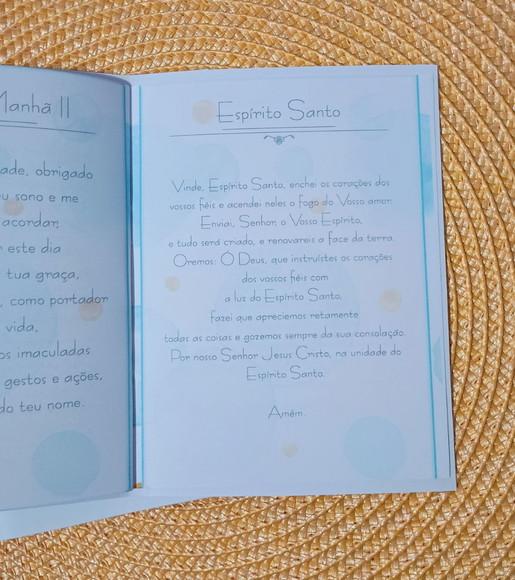 Manhã II
ade, obrigado
u sono e me
acordar,
este dia
tua graça,
, como portador
vida,
os imaculadas
gestos e ações,
do teu nome.
Espírito Santo
Vinde, Espírito Santo, enchei os corações dos
vossos fiéis e acendei neles o fogo do Vosso amor.
Enviai, Senhor, o Vosso Espírito,
e tudo será criado, e renovareis a face da terra.
Oremos: Ó Deus, que instruístes os corações
dos vossos fiéis com
a luz do Espírito Santo,
fazei que apreciemos retamente
todas as coisas e gozemos sempre da sua consolação.
Por nosso Senhor Jesus Cristo, na unidade do
Espírito Santo.
Amém.